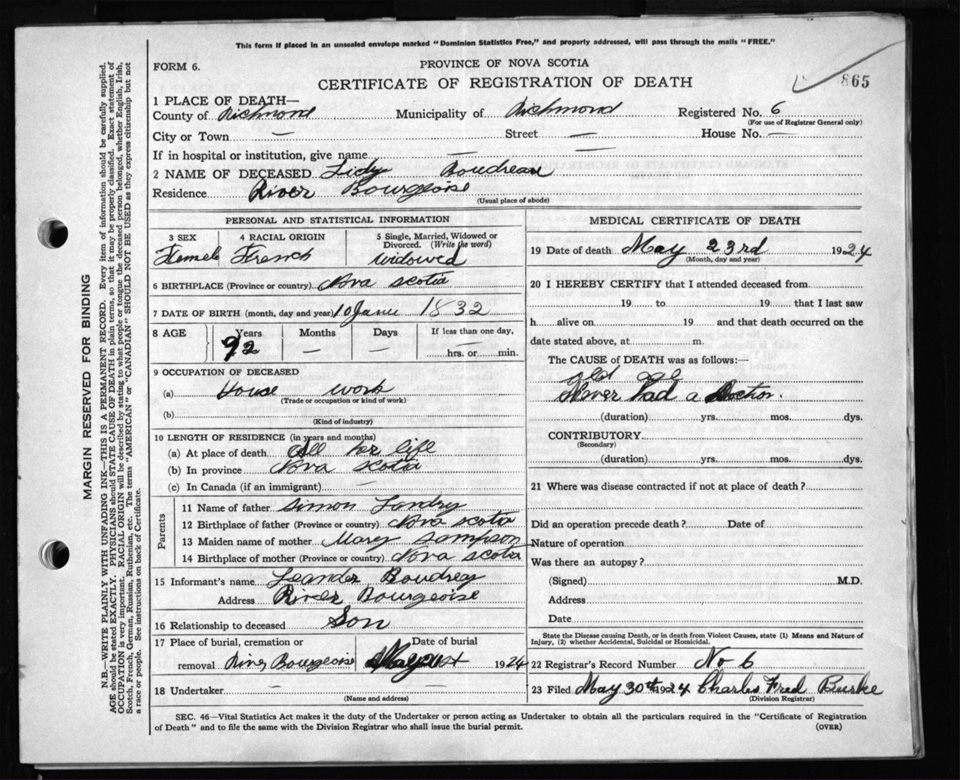 This form if placed in an unsealed envelope marked "Dominion Statistics Free," and properly addressed, will pass through the mails "FREE."
FORM 6.
PROVINCE OF NOVA SCOTIA
CERTIFICATE OF REGISTRATION OF DEATH
865
1 PLACE OF DEATH—
County of Richmond Municipality of Richmond Registered No. 6
(For use of Registrar General only)
City or Town — Street — House No. —
If in hospital or institution, give name — —
2 NAME OF DECEASED Lidy Boudreau
Residence River Bourgeoise
(Usual place of abode)
PERSONAL AND STATISTICAL INFORMATION
3 SEX 4 RACIAL ORIGIN 5 Single, Married, Widowed or Divorced. (Write the word)
Femele French widowed
6 BIRTHPLACE (Province or country) Nova scotia
7 DATE OF BIRTH (month, day and year) 10 June 1832
8 AGE Years Months Days If less than one day,
92 — — hrs. or min.
9 OCCUPATION OF DECEASED
(a) House work
(Trade or occupation or kind of work)
(b)
(Kind of industry)
10 LENGTH OF RESIDENCE (in years and months)
(a) At place of death All her life
(b) In province Nova scotia
(c) In Canada (if an immigrant) —
Parents
11 Name of father Simon Landry
12 Birthplace of father (Province or country) Nova scotia
13 Maiden name of mother Mary Sampson
14 Birthplace of mother (Province or country) Nova scotia
15 Informant's name Leander Boudrey
Address River Bourgeoise
16 Relationship to deceased Son
17 Place of burial, cremation or Date of burial
removal River Bourgeoise May 1924
18 Undertaker — —
(Name and address)
MEDICAL CERTIFICATE OF DEATH
19 Date of death May 23rd 1924
(Month, day and year)
20 I HEREBY CERTIFY that I attended deceased from
19 to 19 that I last saw
h alive on 19 and that death occurred on the
date stated above, at m.
The CAUSE of DEATH was as follows:—
old age
Never had a Doctor.
(duration) yrs. mos. dys.
CONTRIBUTORY
(Secondary)
(duration) yrs. mos. dys.
21 Where was disease contracted if not at place of death?
Did an operation precede death? Date of
Nature of operation
Was there an autopsy?
(Signed) M.D.
Address
Date
State the Disease causing Death, or in death from Violent Causes, state (1) Means and Nature of
Injury, (2) whether Accidental, Suicidal or Homicidal.
22 Registrar's Record Number No 6
23 Filed May 30th 1924 Charles Fred Burke
(Division Registrar)
SEC. 46—Vital Statistics Act makes it the duty of the Undertaker or person acting as Undertaker to obtain all the particulars required in the "Certificate of Registration
of Death" and to file the same with the Division Registrar who shall issue the burial permit. (OVER)
MARGIN RESERVED FOR BINDING
N.B.—WRITE PLAINLY WITH UNFADING INK—THIS IS A PERMANENT RECORD. Every item of information should be carefully supplied.
AGE should be stated EXACTLY. PHYSICIANS should STATE CAUSE OF DEATH in plain terms, so that it may be properly classified. Exact statement of
OCCUPATION is very important. RACIAL ORIGIN will be described by stating to what people or tongue the deceased person belonged, whether English, Irish,
Scotch, French, German, Russian, Ruthenian, etc. The terms "AMERICAN" or "CANADIAN" SHOULD NOT BE USED as they express citizenship but not
a race or people. See instructions on back of Certificate.